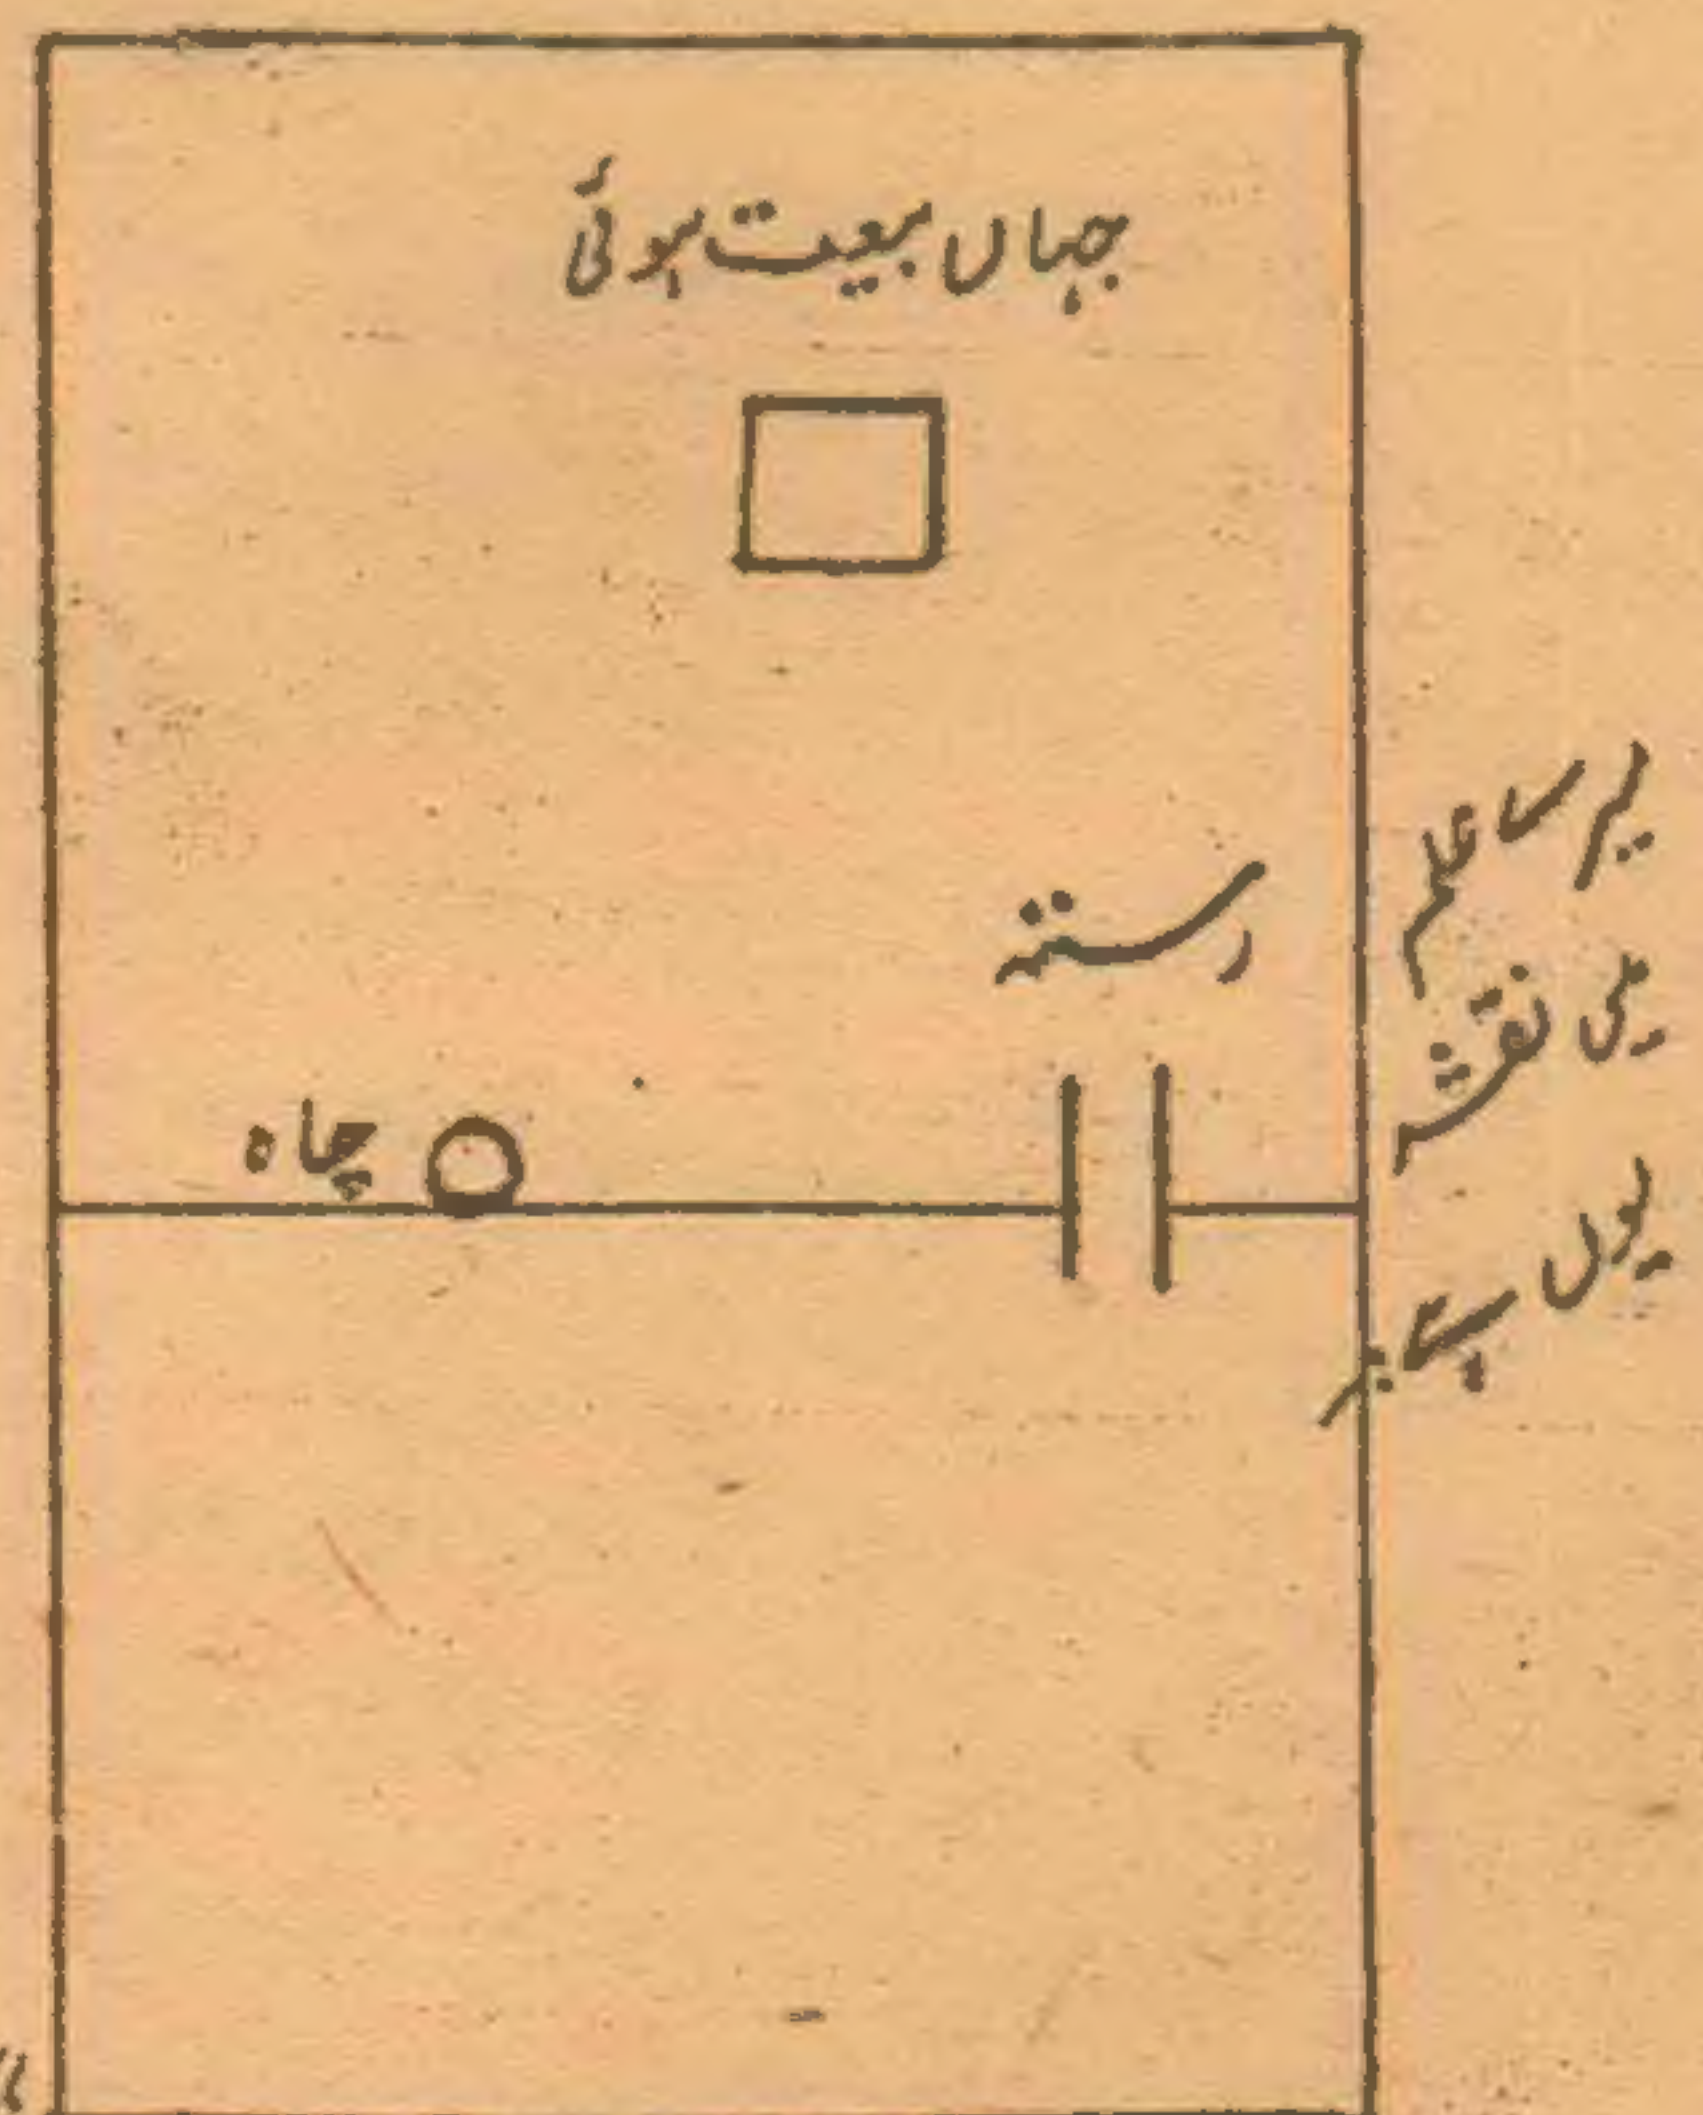 جہاں بیعت ہوئی
رستہ
چاہ
میرے علم
میں نقشہ
یوں ہے: